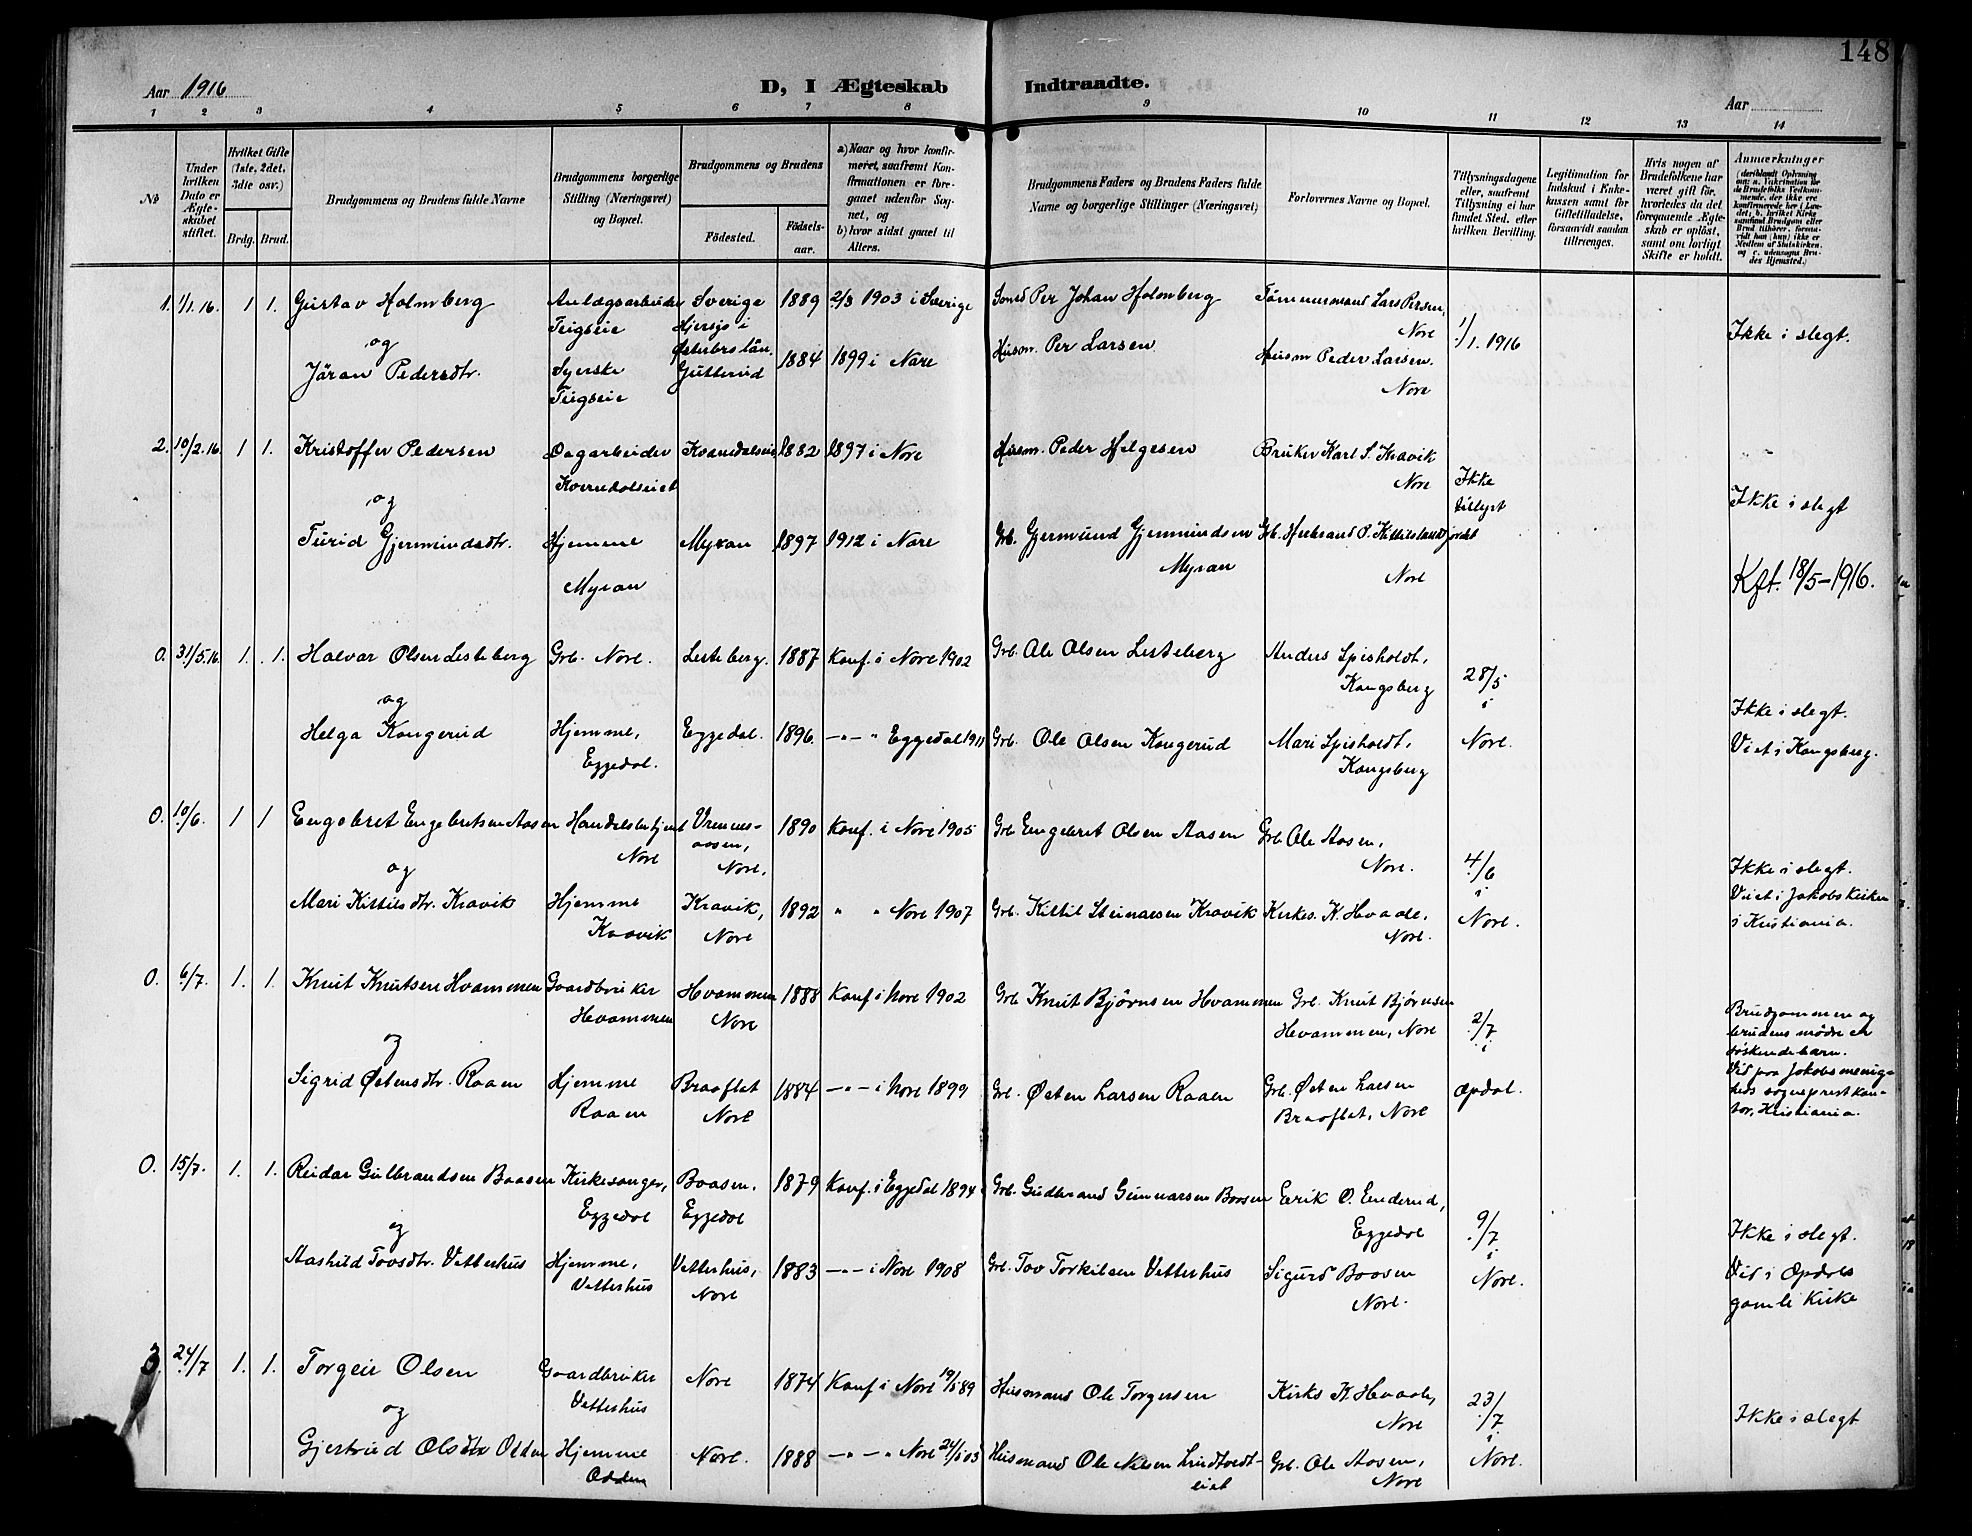 148
Aar 1916
D, I Ægteskab Indtraadte.
Aar
1 2 3 4 5 6 7 8 9 10 11 12 13 14
No
Under hvilken Dato er Ægteskabet stiftet.
Hvilket Gifte (1ste, 2det, 3die osv.)
Brdg. Brud.
Brudgommens og Brudens fulde Navne
Brudgommens borgerlige Stilling (Næringsvei) og Bopæl.
Brudgommens og Brudens
Fødested.
Fødselsaar.
a) Naar og hvor konfirmeret, saafremt Konfirmationen er foregaaet udenfor Sognet, og
b) hvor sidst gaaet til Alters.
Brudgommens Faders og Brudens Faders fulde Navne og borgerlige Stillinger (Næringsvei)
Forlovernes Navne og Bopæl.
Tillysningsdagene eller, saafremt Tillysning ei har fundet Sted, efter hvilken Bevilling.
Legitimation for Indskud i Enkekassen samt for Giftetilladelse, forsaavidt saadan tiltrænges.
Hvis nogen af Brudefolkene har været gift før, hvorledes da det foregaaende Ægteskab er opløst, samt om lovligt Skifte er holdt.
Anmærkninger
1. 1/1.16. 1 1. Gustav Holmberg Anlægsarbeider Sverige 1889 2/3 1903 i Sverige Smed Per Johan Holmberg Tømmermand Lars Persen,
Teigseie Hjersjø i Nore
og Østerbrs län. 1/1. 1916 Ikke i slegt.
Jöran Pedersdtr. Syerske Gutterud 1884 1899 i Nore Husm. Per Larsen Husm Peder Larsen.
Teigseie Nore
2. 10/2.16 1 1. Kristoffer Pedersen Dagarbeider 1882 1897 i Nore Husm. Peder Helgesen Bruker Karl S. Kravik
Kverndalseiet Nore Ikke tillyst
og Ikke i slegt
Turid Gjermundsdtr. Hjemme Myran 1897 1912 i Nore Grb. Gjermund Gjermundsen Grb. Herbrand P. Kittilslandjordet
Myran Myran Nore
Kft. 18/5-1916.
0. 31/5.16 1. 1. Halvar Olsen Lesteberg Grb. Nore. Lesteberg. 1887 Konf. i Nore 1902 Grb. Ole Olsen Lesteberg Anders Spisholdt,
Kongsberg 28/5 i
og Ikke i slegt.
Helga Kongerud Hjemme, Eggedal. 1896 -"- " Eggedal 1911 Grb. Ole Olsen Kongerud Mari Spisholdt, Nore. Viet i Kongsberg.
Eggedal. Kongsberg
0. 10/6. 1 1 Engebret Engebretsen Aasen Handelsbetjent Vrennesaasen, Nore. 1890 Konf. i Nore 1905 Grb. Engebret Olsen Aasen Grb. Ole Aasen,
Nore Nore. 4/6 i
og Ikke i slegt.
Mari Kittilsdtr. Kravik Hjemme Kravik, 1892 " " Nore 1907 Grb. Kittil Steinarsen Kravik Kirkes. K. Hvaale, Nore. Viet i Jakobskirken
Kravik Nore Nore. i Kristiania.
0. 6/7. 1. 1. Knut Knutsen Hvammen Gaardbruker Hvammen 1888 Konf i Nore 1902 Grb. Knut Bjørnsen Hvammen Grb. Knut Bjørnsen
Hvammen Nore Hvammen, Nore 2/7 i
og Brudgommens og
brudens mødre er
søskendebarn.
Sigrid Østensdtr. Raaen Hjemme Braaflat 1884 -"- i Nore 1899 Grb. Østen Larsen Raaen Grb. Østen Larsen Opdal. Vid paa Jakobs menigheds sogneprestkontor, Kristiania.
Raaen Nore Braaflat, Nore
0. 15/7. 1. 1. Reidar Gulbrandsen Baasen Kirkesanger, Baasen, 1879 Konf. i Eggedal 1894 Grb. Gudbrand Gunnarsen Baasen Eerik O. Enderud,
Eggedal Eggedal Eggedal 9/7 i
og Ikke i slegt.
Aashild Tovsdtr. Vetterhus Hjemme, Vetterhus, 1883 -"- i Nore 1908 Grb. Tov Torkilsen Vetterhus Sigurd Baasen Nore. Vid i Opdals
Vetterhus Nore Nore. gamle kirke
3. 24/7 1. 1. Torgeir Olsen Gaardbruker Nore 1874 Konf i Nore Husmand Ole Torgersen Kirks K. Hvaale,
Vetterhus Nore 23/7 i
og Ikke i slegt
Gjertrud Olsdtr Odden Hjemme Nore. 1888 -"- " Nore Husmand Ole Nilsen Grb. Ole Aasen, Nore.
Odden eiet Nore